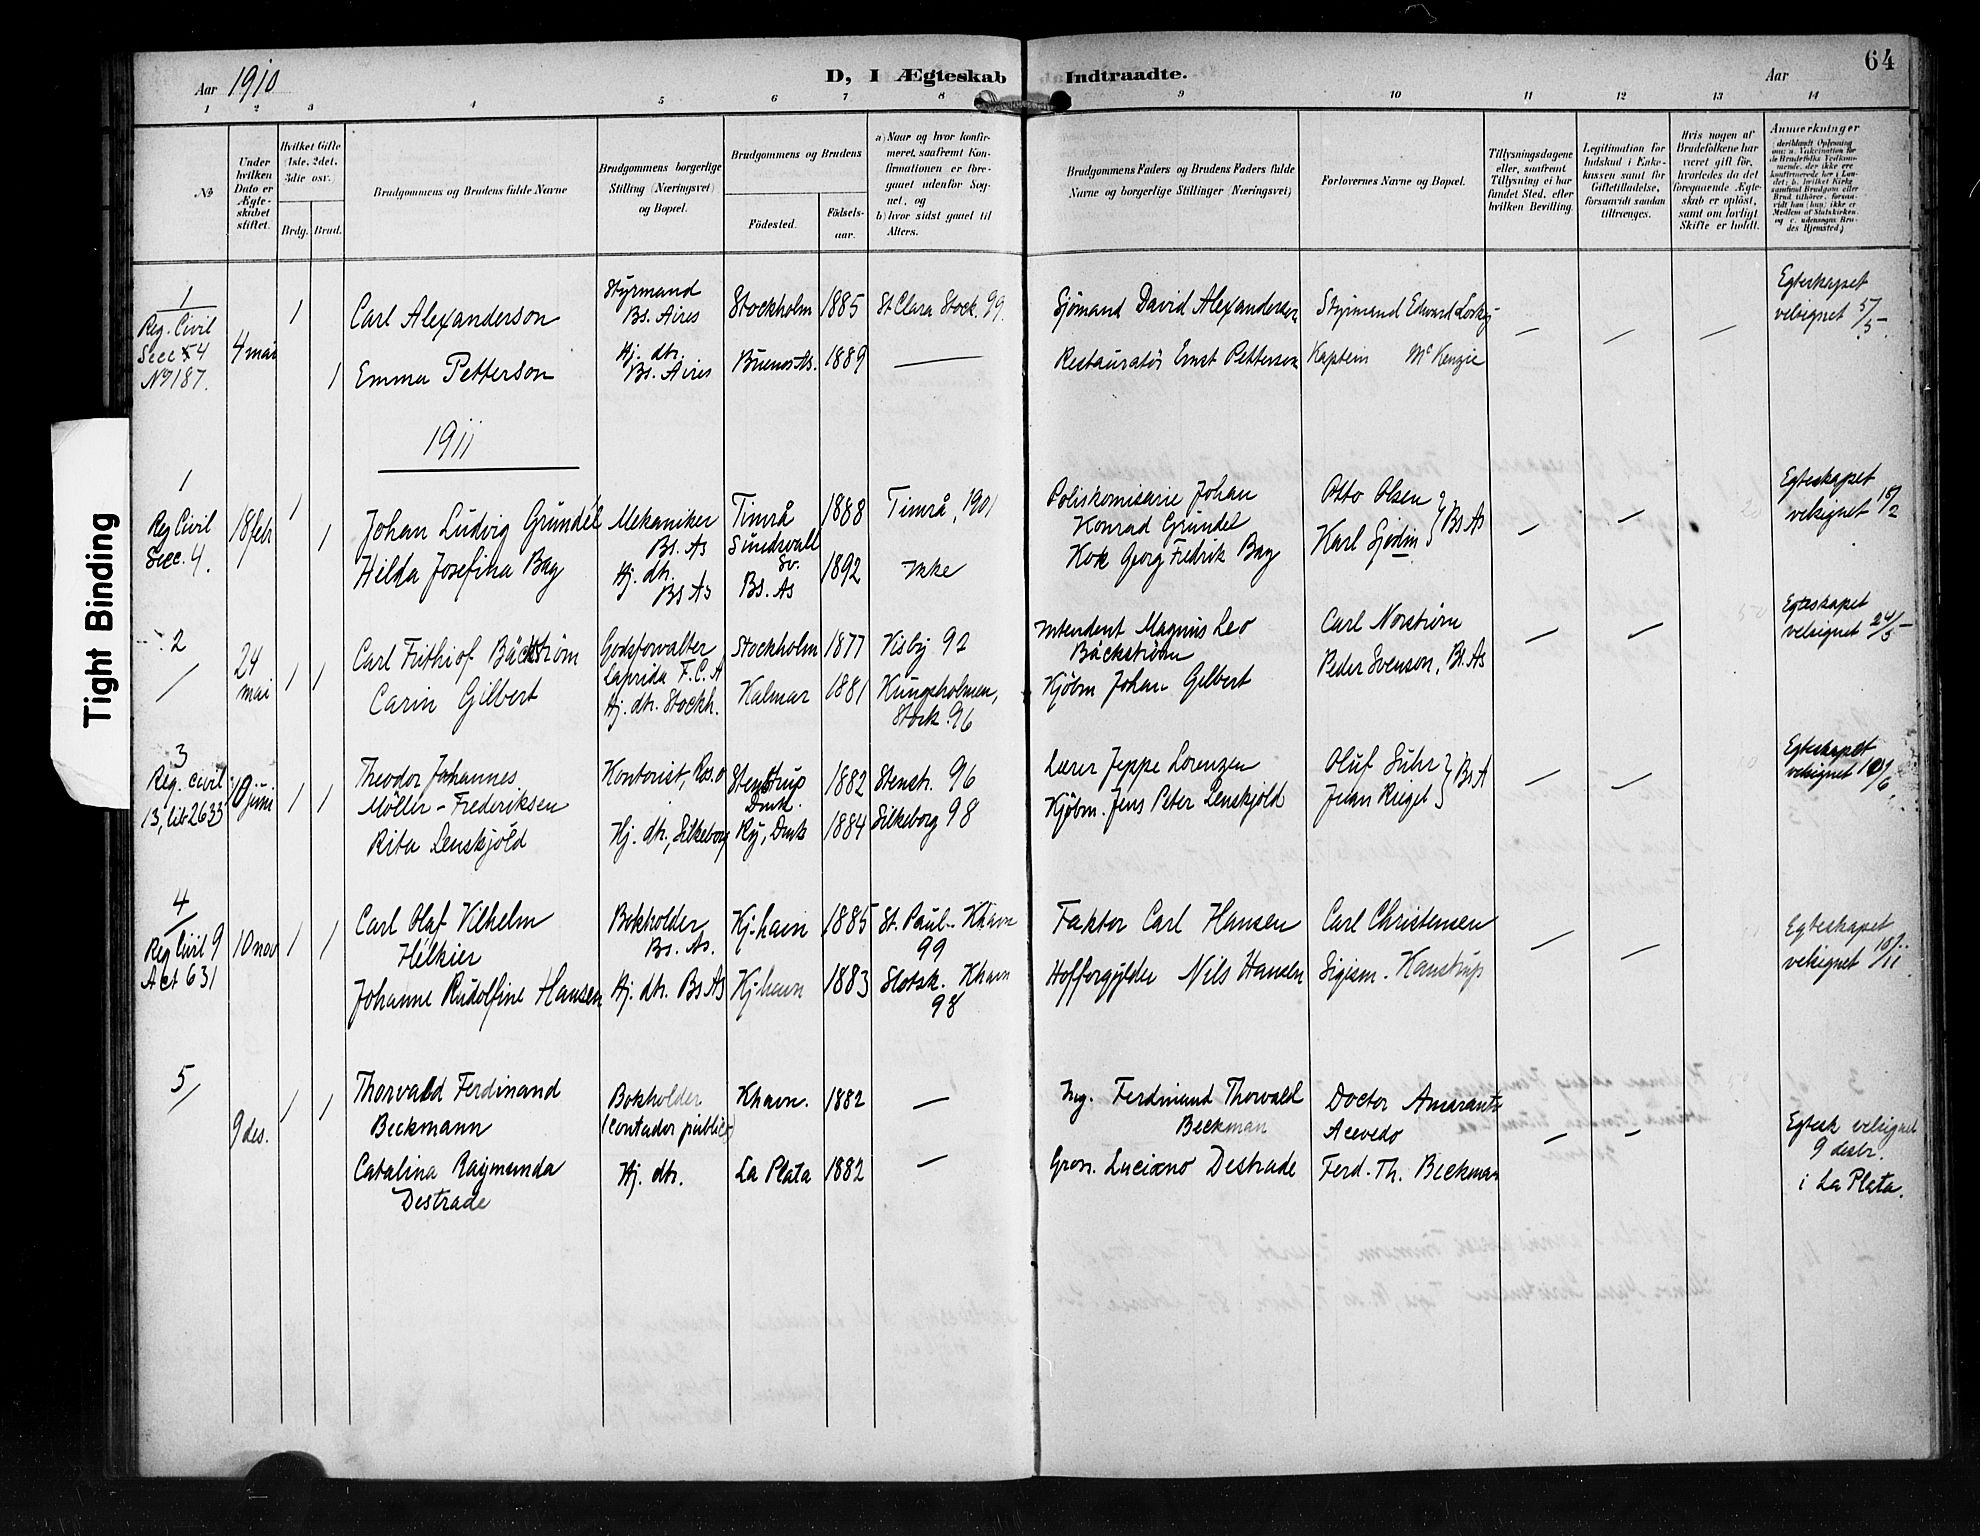 64
Aar 1910
D, I Ægteskab Indtraadte.
Aar
1 2 3 4 5 6 7 8 9 10 11 12 13 14
№
Under hvilken Dato er Ægteskabet stiftet.
Hvilket Gifte 1ste, 2det, 3die osv.
Brdg. Brud.
Brudgommens og Brudens fulde Navne
Brudgommens borgerlige Stilling (Næringsvei) og Bopæl.
Brudgommens og Brudens
Födested.
Födsels-aar.
a) Naar og hvor konfirmeret, saafremt Konfirmationen er foregaaet udenfor Sognet, og
b) hvor sidst gaaet til Alters.
Brudgommens Faders og Brudens Faders fulde Navne og borgerlige Stillinger (Næringsvei)
Forlovernes Navne og Bopæl.
Tillysningsdagene eller, saafremt Tillysning ei har fundet Sted, efter hvilken Bevilling.
Legitimation for Indskud i Enkekassen samt for Giftetilladelse, forsaavidt saadan tiltrænges.
Hvis nogen af Brudefolkene har været gift før, hvorledes da det foregaaende Ægteskab er oplöst, samt om lovligt Skifte er holdt.
Anmerkninger
Tight Binding
1
Reg. Civil
Secc 4
No 187.
4 mai
1
1
Carl Alexanderson
Emma Petterson
Styrmand
Bs. Aires
Hj. dtr.
Bs. Aires
Stockholm 1885
Buenos As. 1889
St Clara Stock. 99.
—
Sjömand David Alexanderson
Restauratör Ernst Petterson
Styrmand Edward
Kaptein Mc Kenzie
— — —
Egteskapet
velsignet 5/5 –
1911
1
Reg Civil
Secc. 4.
18 febr
1
1
Johan Ludvig Grundél
Hilda Josefina Bay
Mekaniker
Bs. As
Hj. dtr.
Bs As
Timrå
Sundsvall
Sv.
Bs. As
1888
1892
Timrå, 1901
ikke
Poliskomisarie Johan
Konrad Grundel
Kok Georg Fredrik Bay
Otto Olsen
Karl Sjödin } Bs As
— —
Egteskapet
velsignet 18/2
2
/
24
mai
1 1
Carl Frithiof Bäckström
Carin Gilbert
Godsforvalter
Laprida F.C.A
Hj. dtr. Stockh.
Stockholm 1877
Kalmar 1881
Visby 92
Kungsholmen,
Stock. 96
Intendent Magnus Leo
Bäckström
Kjøbm Johan Gilbert
Carl Norström
Peder Svenson, Bs. As
— —
Egteskapet
velsignet 24/5 –
3
Reg. civil
13, lib 2633
10 juni
1 1
Theodor Johannes
Möller – Frederiksen
Rita Lenskjöld
Kontorist, Ros.o
Hj. dtr., Silkeborg
Stenstrup
Dmk.
Ry, Dmk
1882
1884
Stenstr. 96
Silkeborg 98
Lærer Jeppe Lorenzen
Kjøbm. Jens Peter Lenskjöld
Oluf Suhr
Juan Riegel } Bs A
— —
Egteskapet
velsignet 10/6
4
/
Reg Civil 9
Act 631
10 nov
1 1
Carl Olaf Vilhelm
Helkier
Johanne Rudolfine Hansen
Bokholder
Bs. As.
Hj. dtr. Bs As
Kj.havn 1885
Kj.havn 1883
St. Paul - Khavn
99
Slotsk. Khavn
98
Faktor Carl Hansen
Hofforgylder Nils Hansen
Carl Christensen
Sigism. Kanstrup
— —
Egteskapet
velsignet 10/11
5
/
9 des.
1 1
Thorvald Ferdinand
Beckmann
Catalina Raymunda
Destrade
Bokholder
(contador public)
Hj. dtr.
Khavn. 1882
La Plata 1882
—
—
Ing. Ferdinand Thorvald
Beckman
Gros. Luciano Destrade
Doctor Amarante
Acevedo
Ferd. Th. Beckman
— —
Egtesk velsignet
9 desbr.
i La Plata.